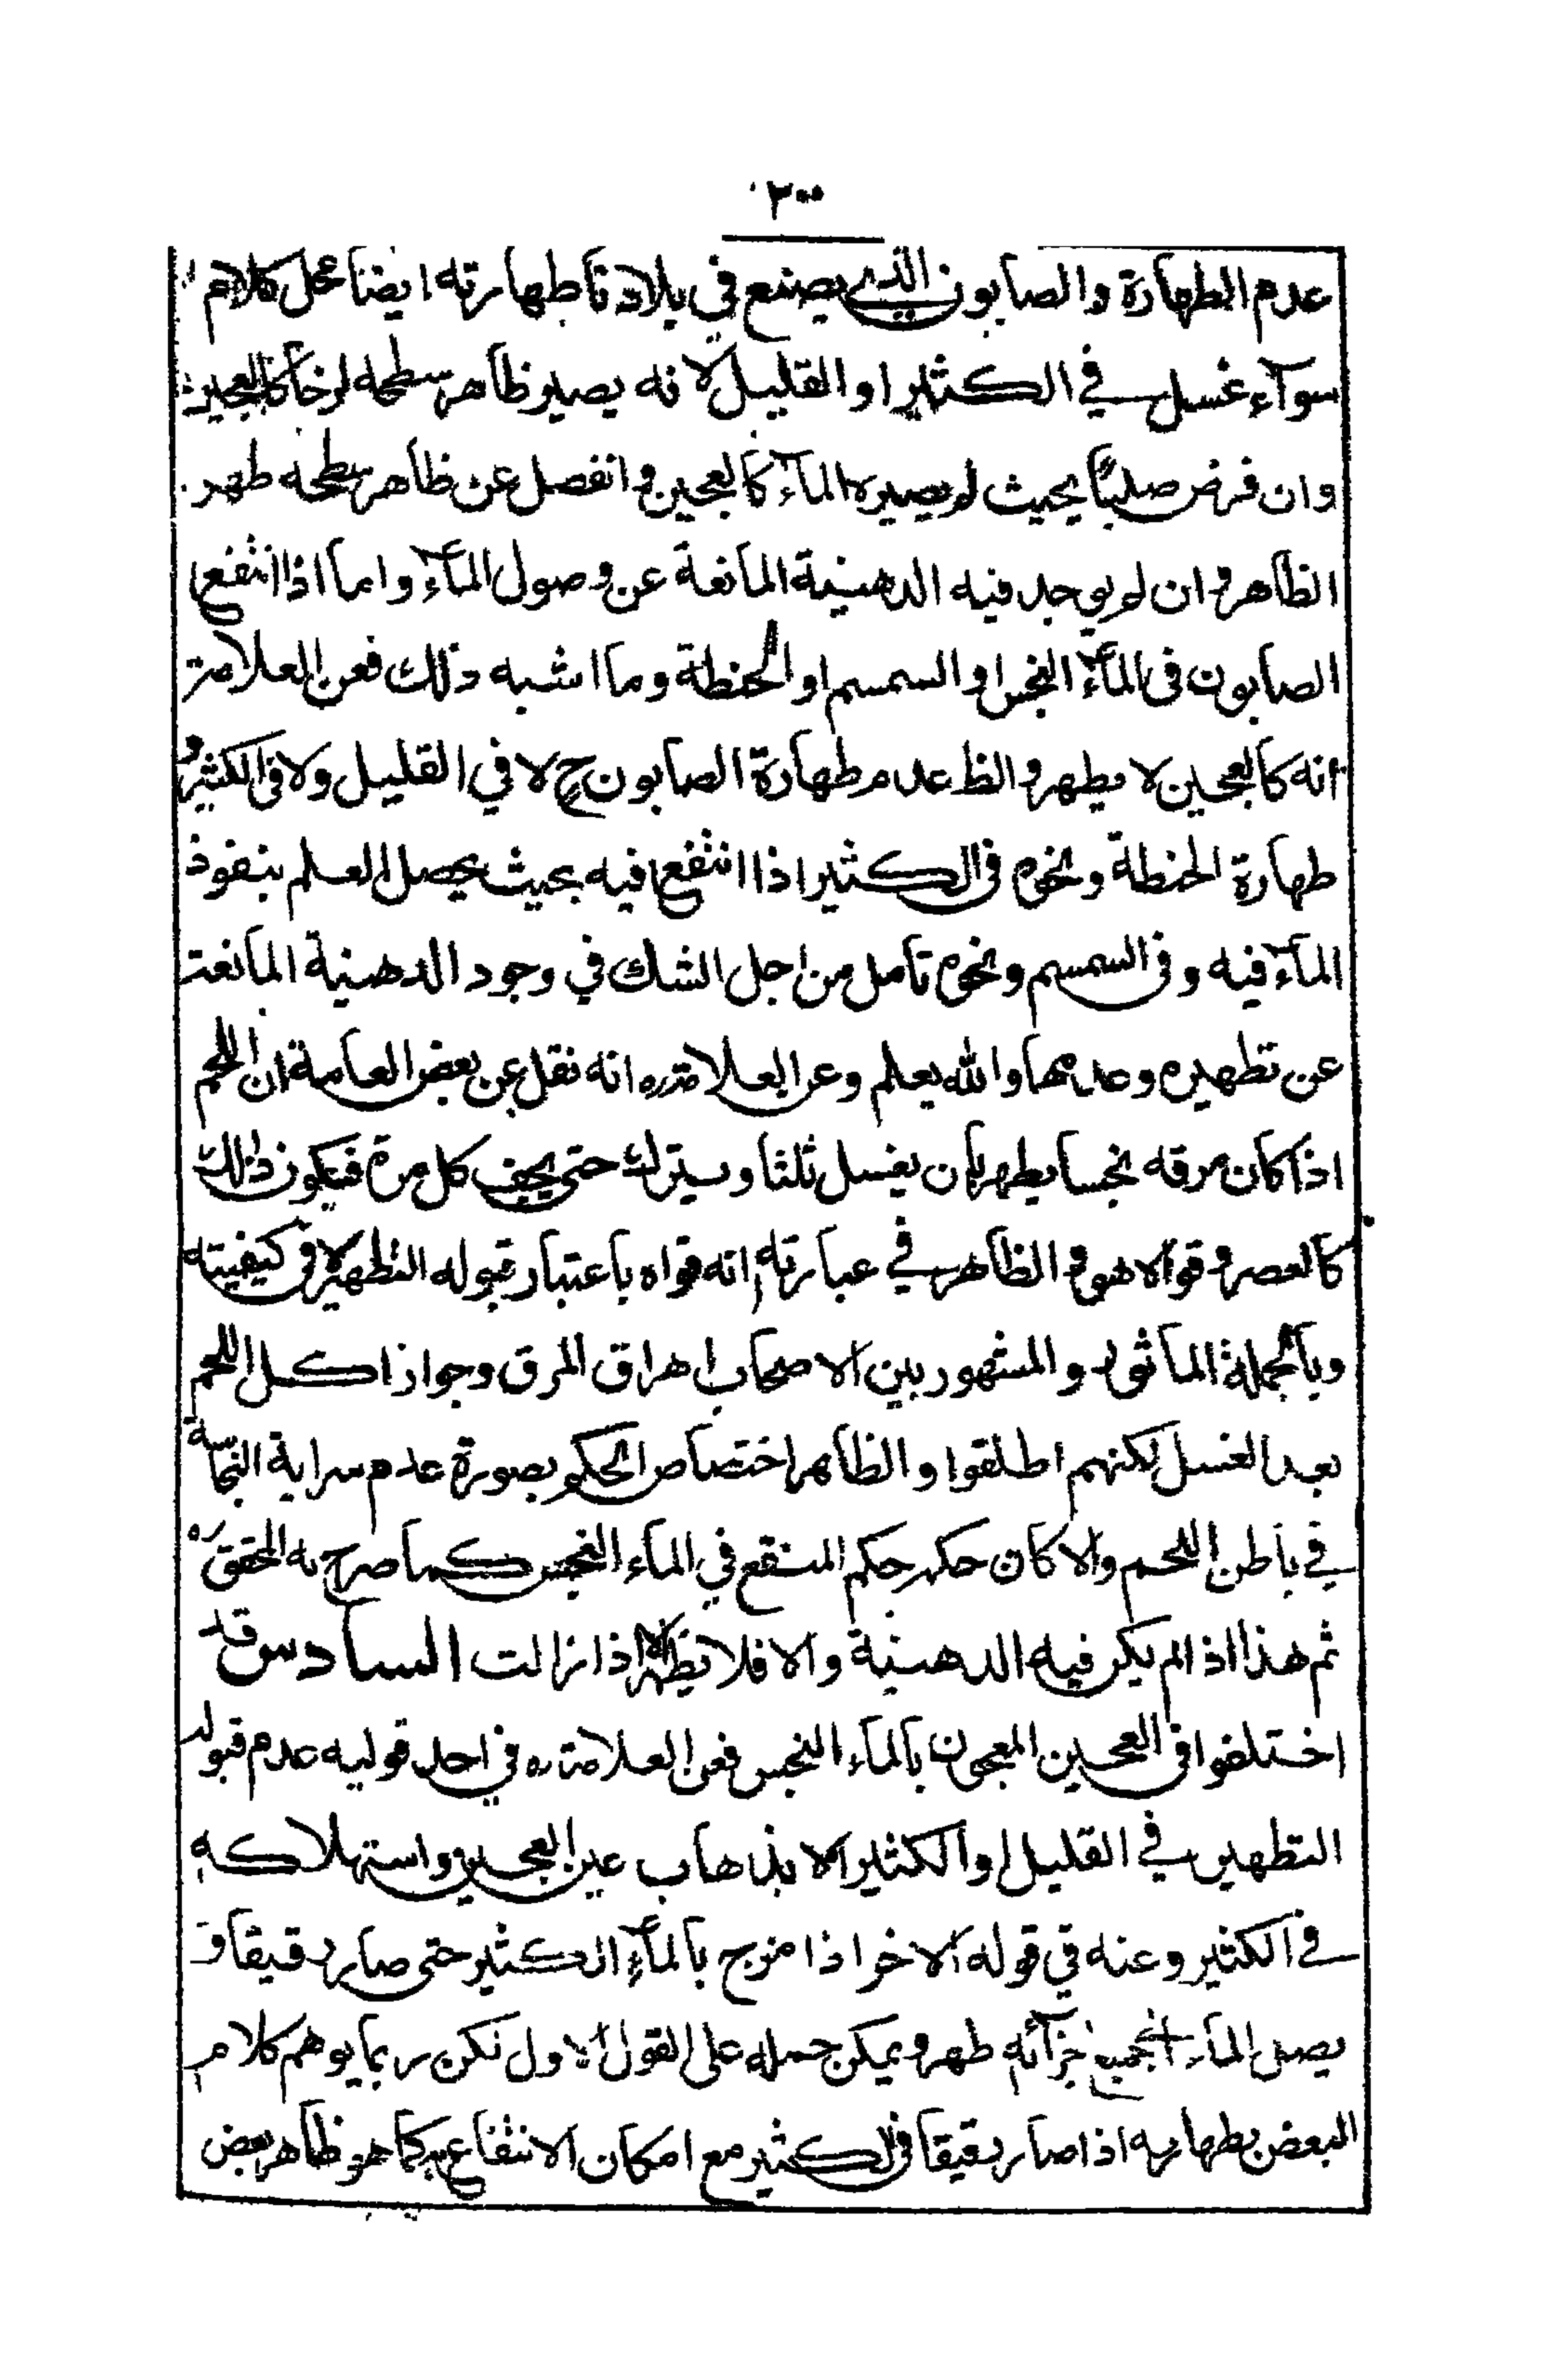 ٢٠٠
عدم الطهارة والصابون الذي يصنع في بلادنا طهارته ايضا محل كلام
سوآء غسل في الكثير او القليل لانه يصير ظاهر سطحه لزخا كالعجين
وان فرض صلبًا بحيث لم يصيره المآء كالعجين وانفصل عن ظاهر سطحه طهر
الظاهر وان لم يوجد فيه الدهنية المانعة عن وصول المآء واما اذا انتفع
الصابون في المآء النجس او السمسم او الحنطة وما اشبه ذلك فعن العلامة
انه كالعجين لا يطهر والظ عدم طهارة الصابون ح لا في القليل ولا في الكثير و
طهارة الحنطة ونحوه في الكثير اذا انتفع فيه بحيث يحصل العلم بنفوذ
المآء فيه وفي السمسم ونحوه تأمل من اجل الشك في وجود الدهنية المانعة
عن تطهيره وعدمها والله يعلم وعن العلامة ره انه نقل عن بعض العامة ان اللحم
اذا كان مرقه نجسا يطهر بان يغسل ثلثا ويترك حتى يجف كل مرة فيكون ذلك
كالعصر وقواه هو والظاهر في عبارته انه قواه باعتبار قبوله التطهير لا في كيفيته
وبالجملة المأثور والمشهور بين الاصحاب اهراق المرق وجواز اكل اللحم
بعد الغسل لكنهم اطلقوا والظاهر اختصاص الحكم بصورة عدم سراية النجاسة
في باطن اللحم والا كان حكمه حكم المنقع في المآء النجس كما صرح به المحقق ره
ثم هذا اذا لم يكن فيه الدهنية والا فلا يطهر الا اذا زالت السادس قد
اختلفوا في العجين المعجون بالمآء النجس فعن العلامة ره في احد قوليه عدم قبوله
التطهير في القليل او الكثير الا بذهاب عين العجين واستهلاكه
في الكثير وعنه في قوله الاخر اذا مزج بالمآء الكثير حتى صار دقيقا و
يصل المآء الجميع اجزآئه طهر ويمكن حمله على القول الاول لكن ربما يوهم كلام
البعض بطهارته اذا صار دقيقا في الكثير مع امكان الانتفاع به كما هو ظاهر بعض